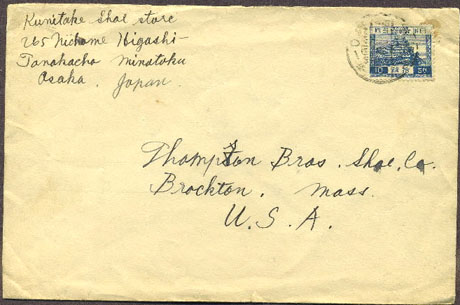 Kunitake Shoe store
265 Nichome Higashi-
Tanakacho Minatoku
Osaka, Japan.
10 SN
Thompson Bros. Shoe. Co.
Brockton. Mass.
U. S. A.